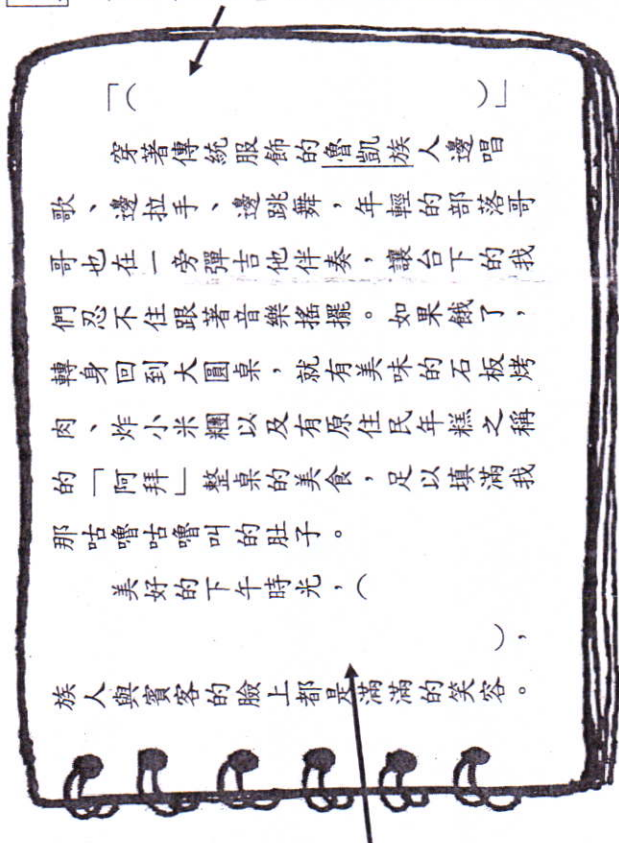 「(　　　　　　　　　　)」
穿著傳統服飾的魯凱族人邊唱
歌、邊拉手、邊跳舞，年輕的部落哥
哥也在一旁彈吉他伴奏，讓台下的我
們忍不住跟著音樂搖擺。如果餓了，
轉身回到大圓桌，就有美味的石板烤
肉、炸小米糰以及有原住民年糕之稱
的「阿拜」整桌的美食，足以填滿我
那咕嚕咕嚕叫的肚子。
美好的下午時光，(
)，
族人與賓客的臉上都是滿滿的笑容。